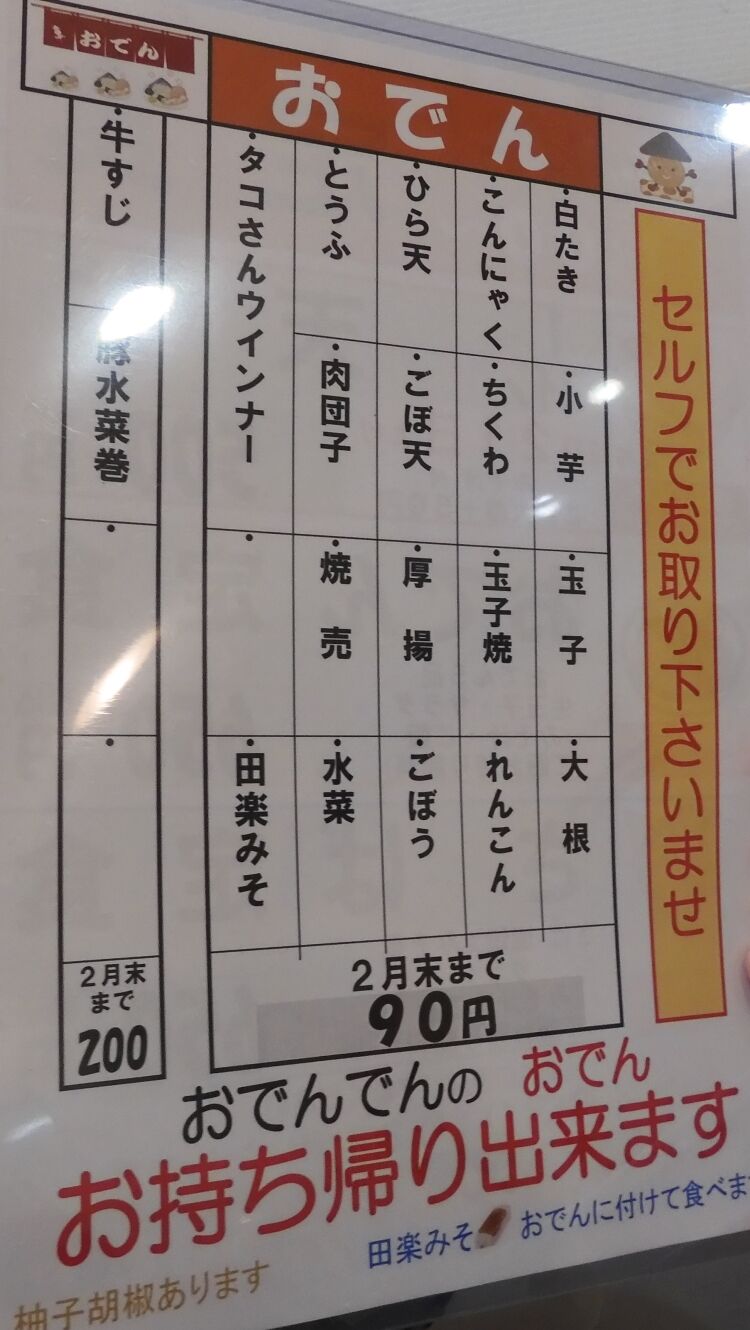 おでん
おでん
セルフでお取り下さいませ
・白たき
・小芋
・玉子
・大根
・こんにゃく
・ちくわ
・玉子焼
・れんこん
・ひら天
・ごぼ天
・厚揚
・ごぼう
・とうふ
・肉団子
・焼売
・水菜
・タコさんウインナー
・
・田楽みそ
2月末まで
90円
・牛すじ
豚水菜巻
・
・
2月末
まで
200
おでんでんの おでん
お持ち帰り出来ます
田楽みそ おでんに付けて食べます
柚子胡椒あります